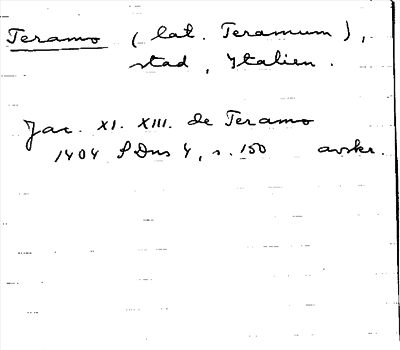 Teramo (lat. Teramum),
stad, Italien.
Jac. XI. XIII. de Teramo
1404 SDns 4, s. 150 avskr.